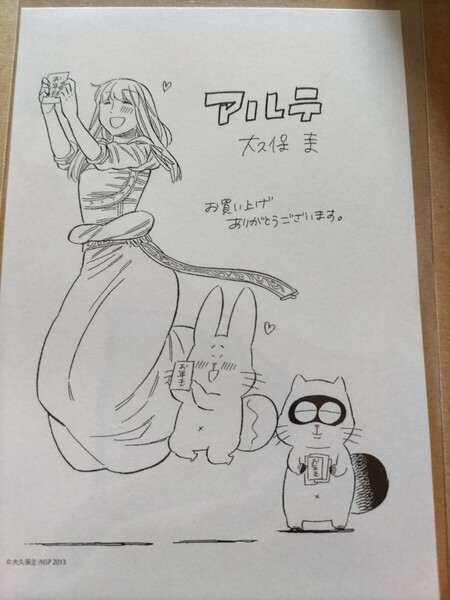 アルテ
大久保 圭
お買い上げ
ありがとうございます。
お年玉
© 大久保圭/NSP 2013